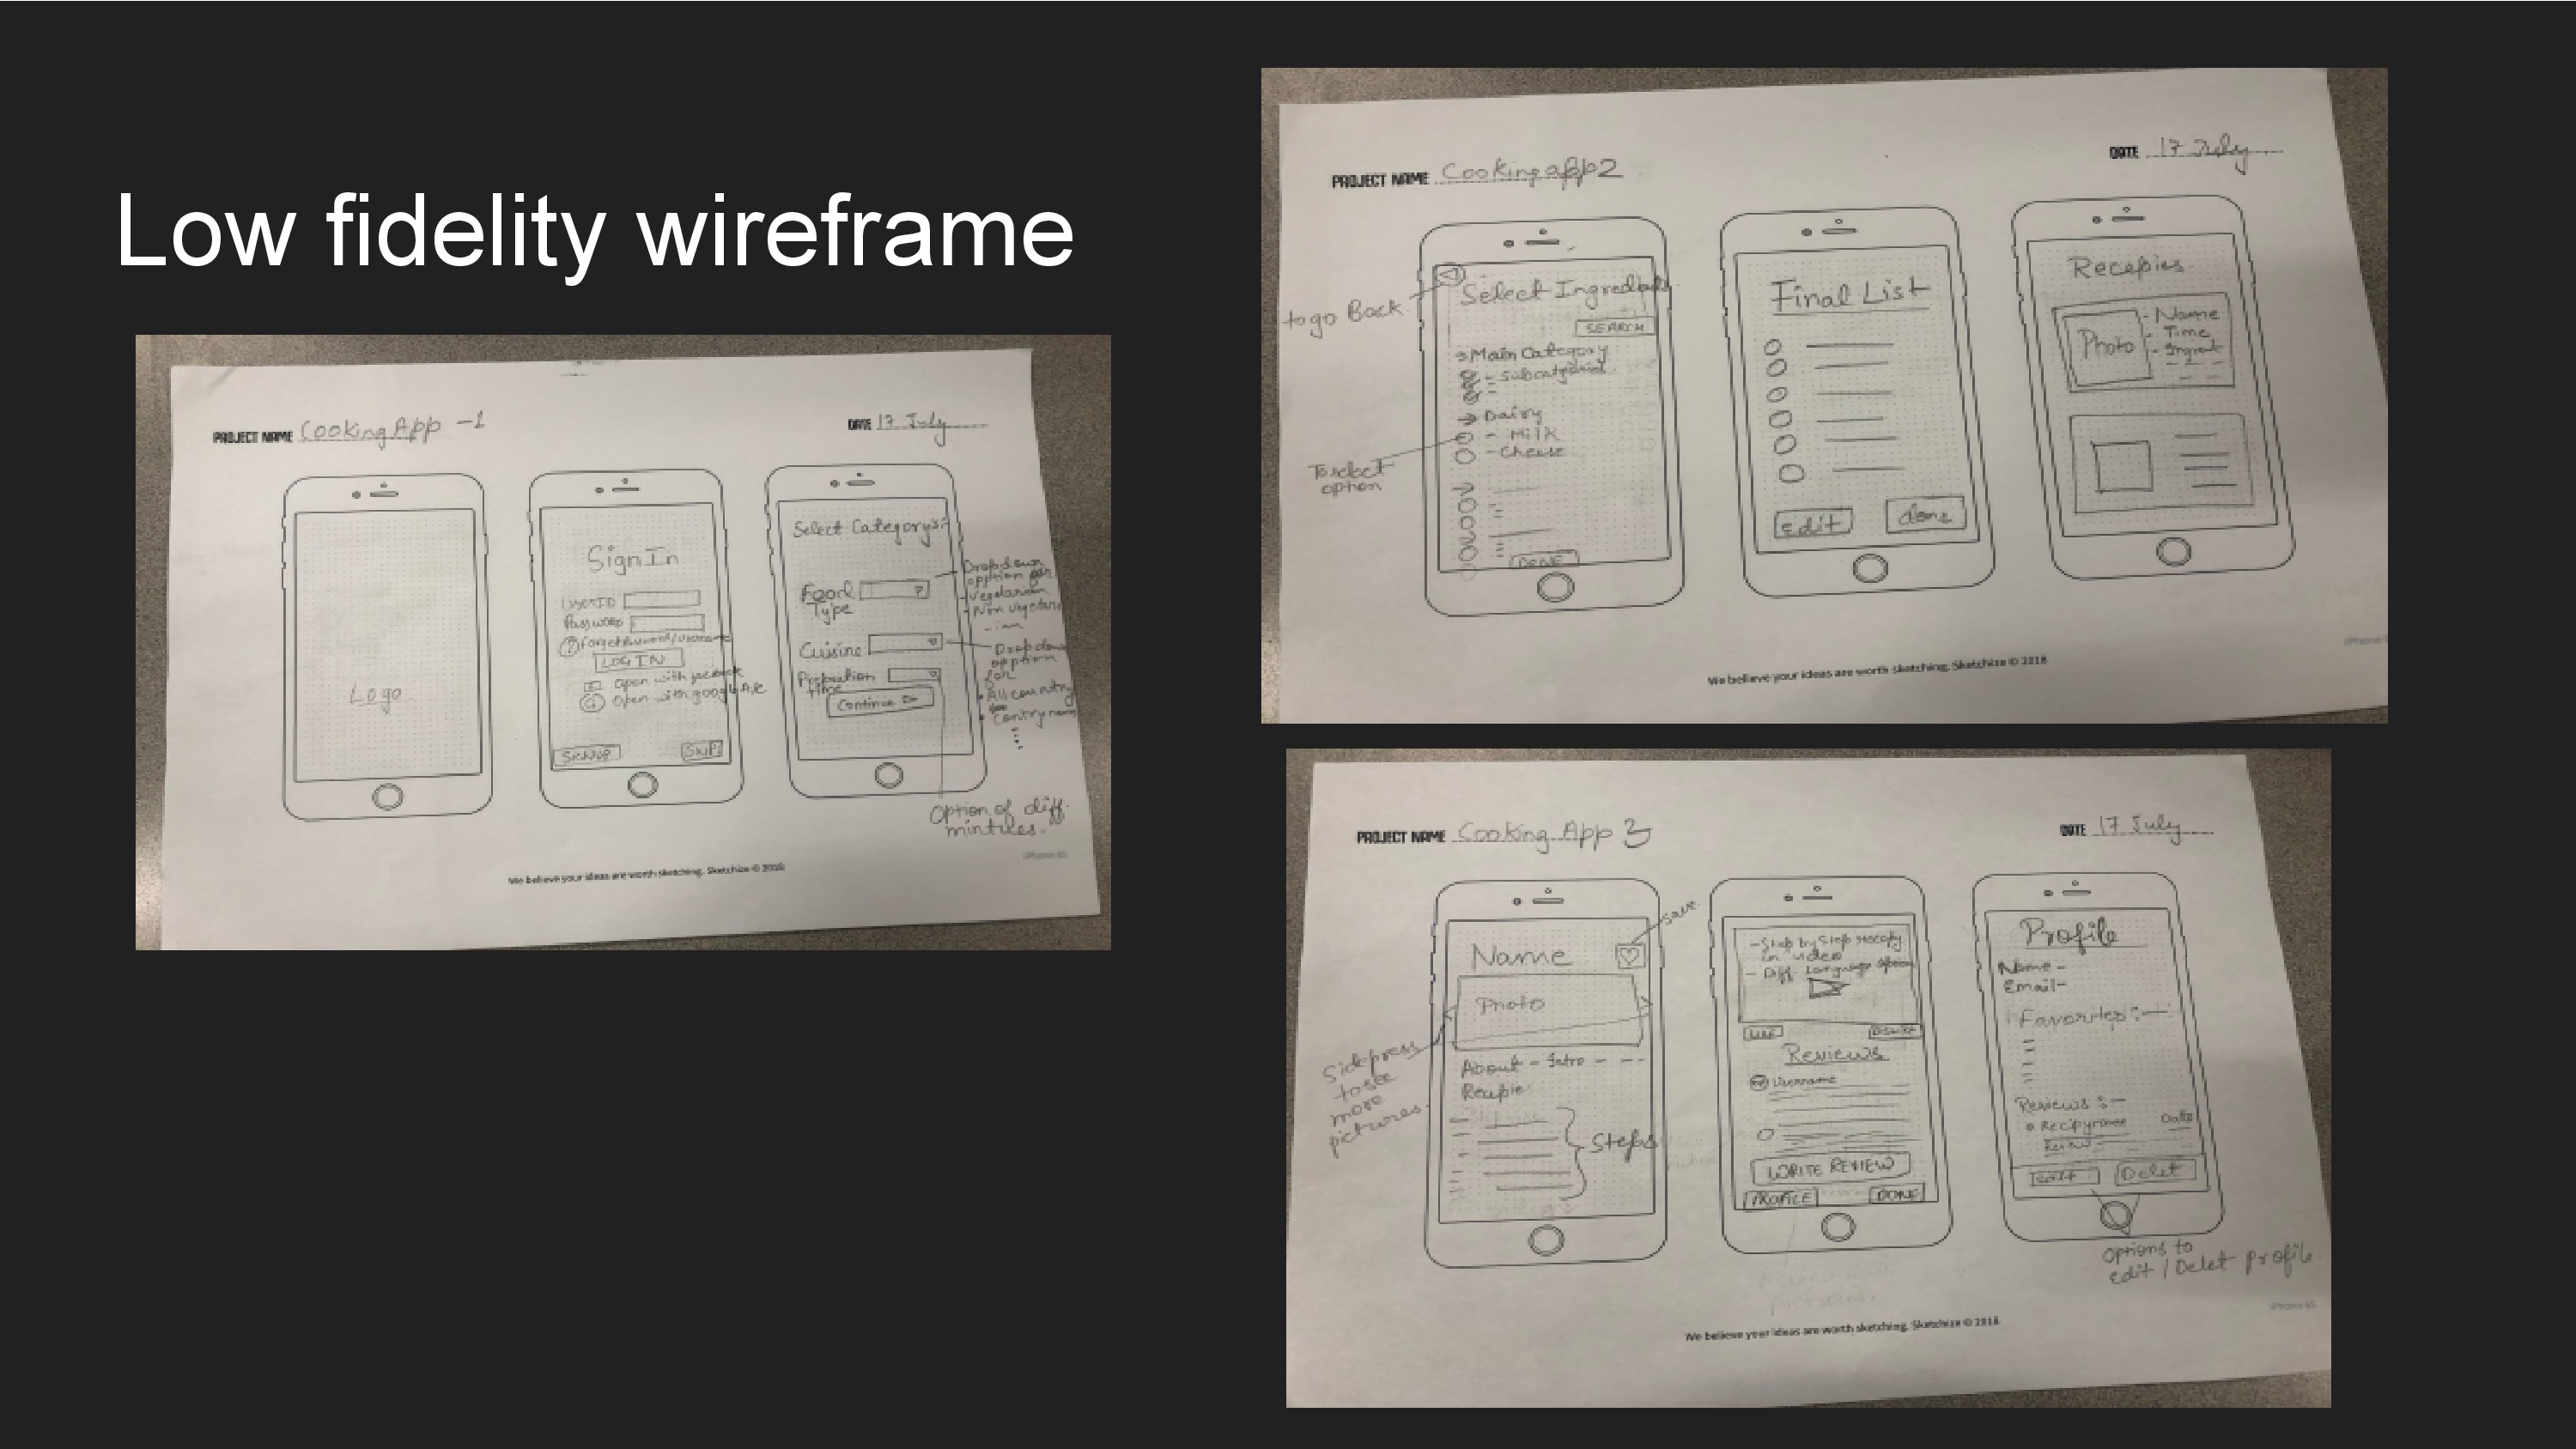 Low fidelity wireframe
PROJECT NAME Cooking App -1
DATE 17 July
Logo
Sign In
UserID
Password
LOG IN
Open with facebook
G Open with google A/c
SIGNUP
SKIP
Select Category's:-
Food
Type
Cuisine
time
Continue
Dropdown
opption for
- Vegetarian
- Non vegetar
- ian
Drop down
opption
for
All country
Contry name
Option of diff.
mintues.
We believe your ideas are worth sketching. Sketchize © 2018
iPhone 6S
PROJECT NAME Cooking app 2
DATE 17 July
to go Back
Select Ingredients
SEARCH
Main Category
- subcategories
Dairy
- Milk
- cheese
To select
option
DONE
Final List
edit
done
Recepies
Photo
- Name
- Time
We believe your ideas are worth sketching. Sketchize © 2018
PROJECT NAME Cooking App 3
DATE 17 July
save
Name
Photo
Side press
to see
more
pictures.
About - Intro - - -
Recipie
Steps
- Step by Step
in video
- Diff. Language option
LIKE
Reviews
Username
WRITE REVIEW
PROFILE
DONE
Profile
Name -
Email -
Favorites :-
Reviews :-
Date
Review
Edit
Delet
Options to
edit / Delet profile
iPhone 6S
We believe your ideas are worth sketching. Sketchize © 2018